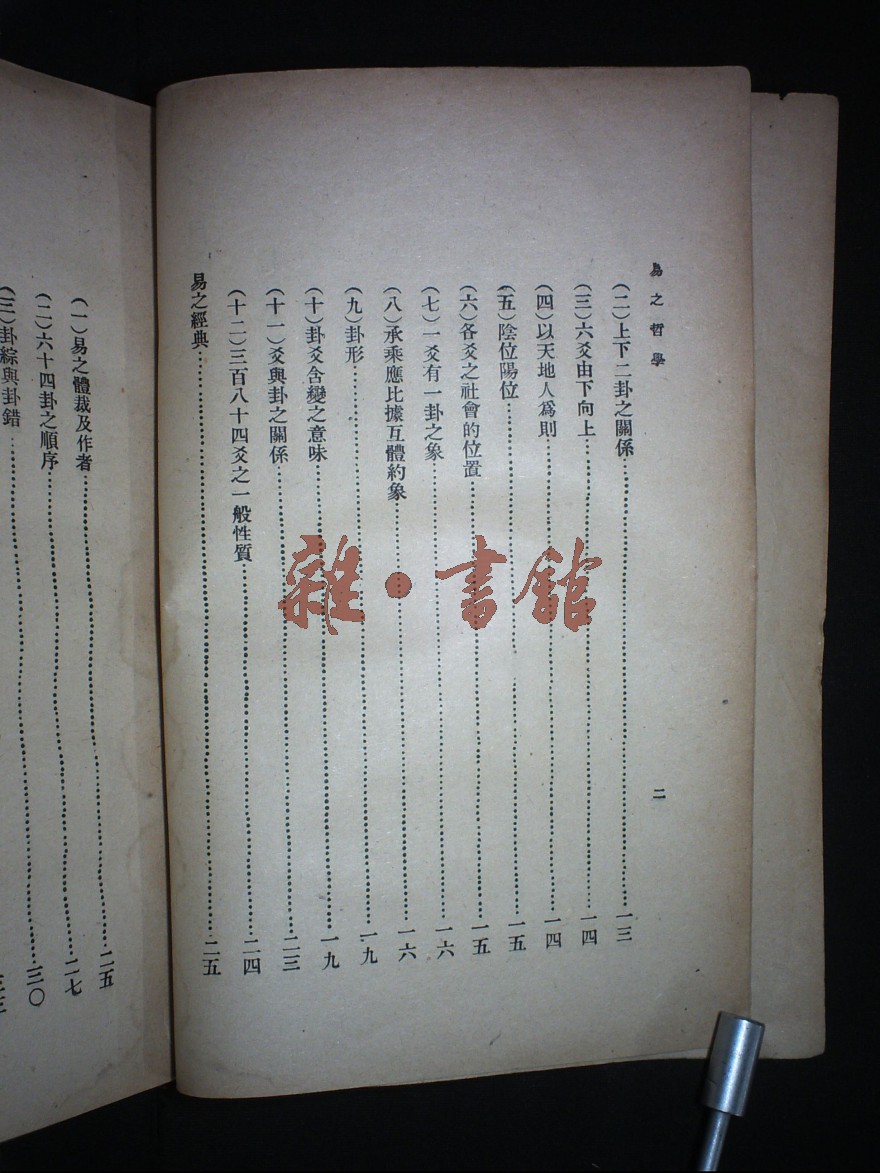 易之哲學 二
(二)上下二卦之關係……一三
(三)六爻由下向上……一四
(四)以天地人爲則……一四
(五)陰位陽位……一五
(六)各爻之社會的位置……一五
(七)一爻有一卦之象……一六
(八)承乘應比據互體約象……一六
(九)卦形……一九
(十)卦爻含變之意味……一九
(十一)爻與卦之關係……二三
(十二)三百八十四爻之一般性質……二四
易之經典……二五
(一)易之體裁及作者……二五
(二)六十四卦之順序……二七
(三)卦綜與卦錯……三〇
雜·書館